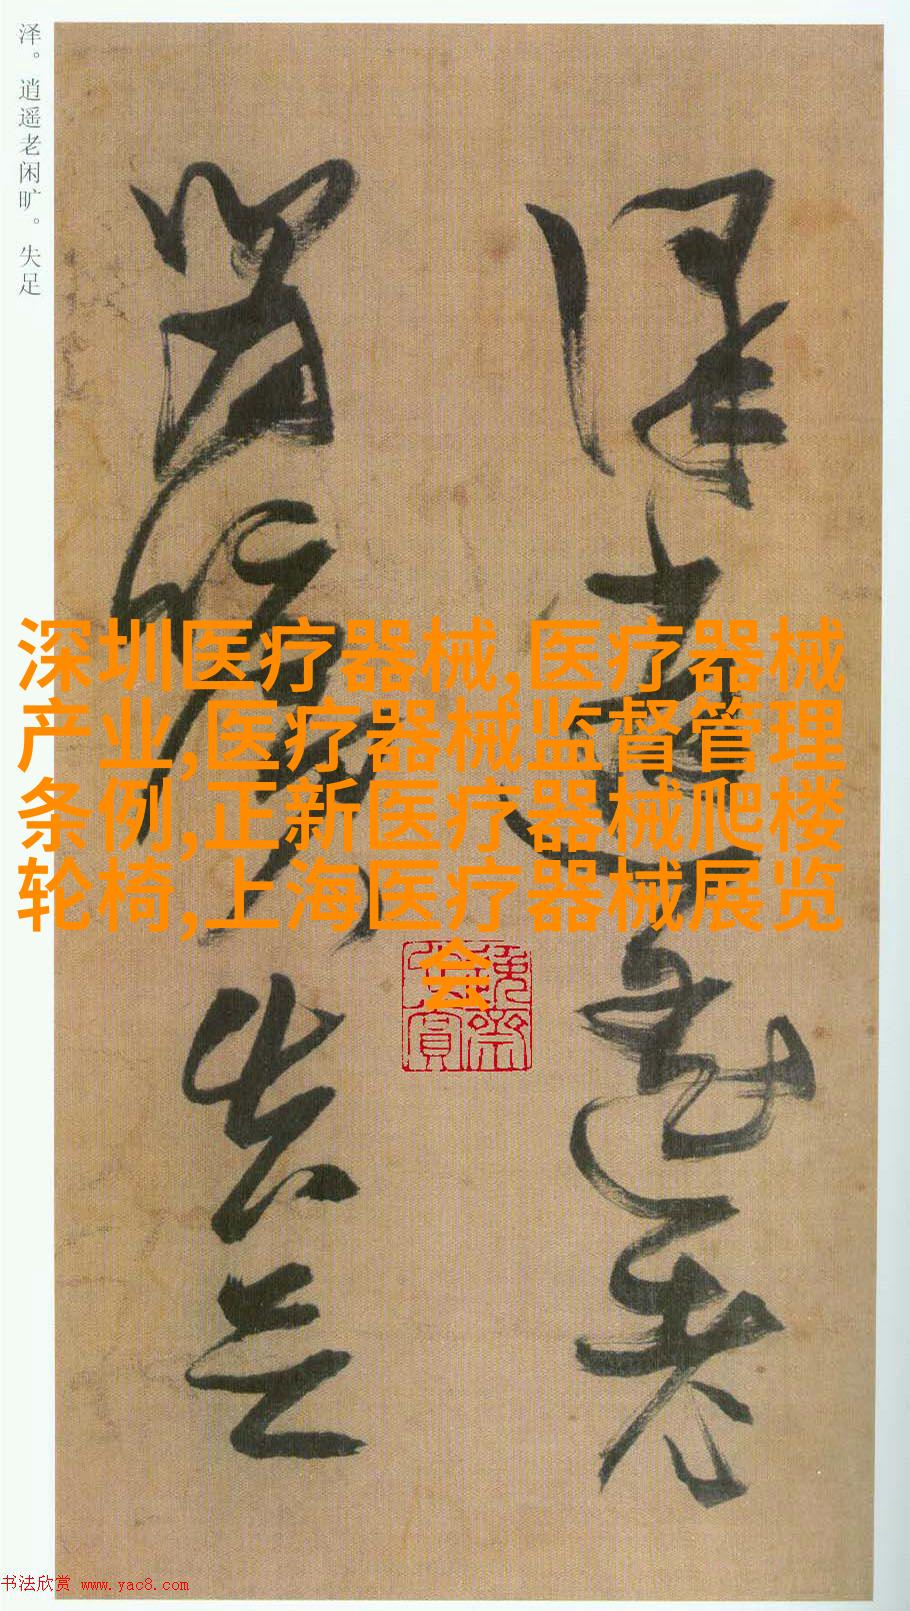 泽。逍遥老闲旷。失足
澤逍遥老
闲旷失足
深圳医疗器械,医疗器械
产业,医疗器械监督管理
条例,正新医疗器械爬楼
轮椅,上海医疗器械展览
会
书法欣赏 www.yac8.com